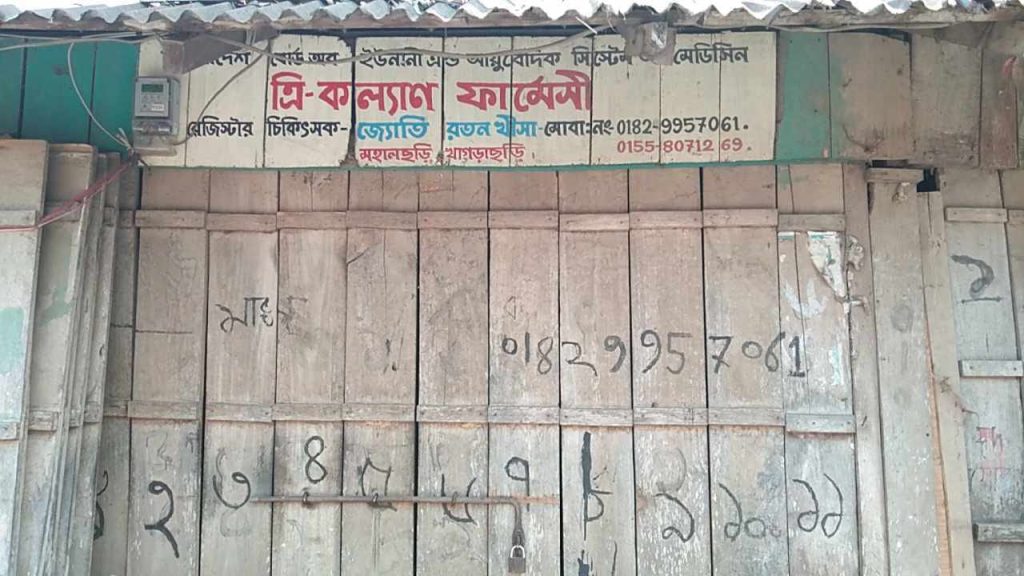 বোর্ড অব ইউনানী এন্ড আয়ুবেদিক সিস্টেম মেডিসিন
ত্রি-কল্যাণ ফার্মেসী
রেজিস্টার চিকিৎসক- জ্যোতি রতন খীসা-মোবা:নং-0182-9957061.
মহালছড়ি, খাগড়াছড়ি। 0155-8071269.
২
01829957061
২ ৩ ৪ ৫ ৬ ৭ ৮ ৯ ১০ ১১